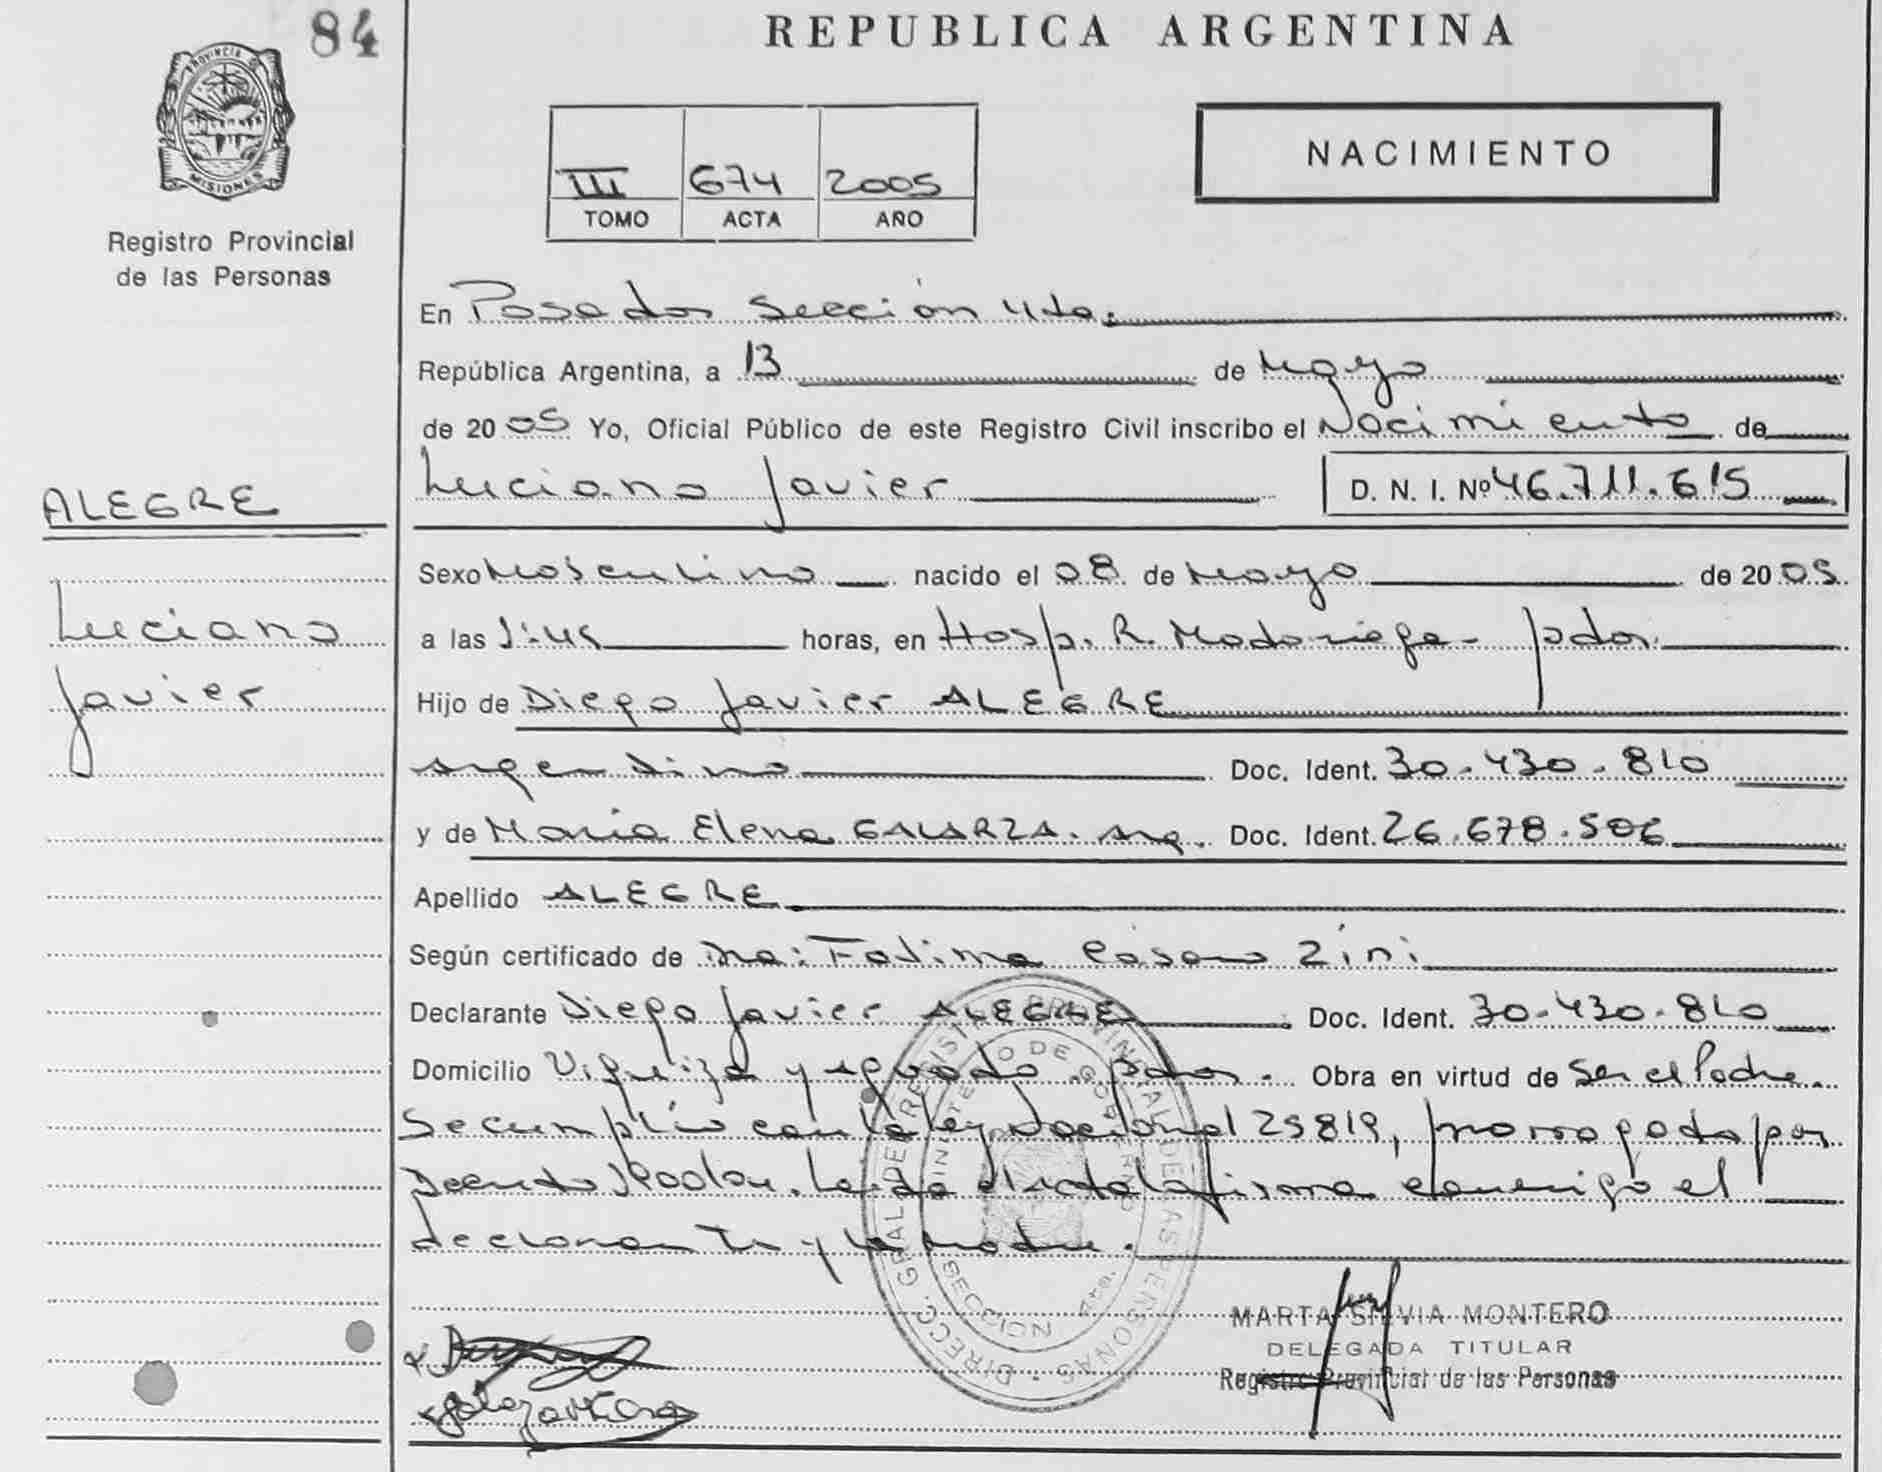 84
REPUBLICA ARGENTINA
PROVINCIA DE
MISIONES
Registro Provincial
de las Personas
NACIMIENTO
III 674 2005
TOMO ACTA AÑO
En Posadas Sección 4ta.
República Argentina, a 13 de Mayo
de 2005 Yo, Oficial Público de este Registro Civil inscribo el Nacimiento de
Luciano Javier D. N. I. Nº 46.711.615
ALEGRE
Luciano
Javier
Sexo Masculino nacido el 08 de Mayo de 2005
a las 1:45 horas, en Hosp. R. Madariaga - pdas.
Hijo de Diego Javier ALEGRE
argentino Doc. Ident. 30.430.810
y de María Elena GALARZA. arg. Doc. Ident. 26.678.506
Apellido ALEGRE
Según certificado de Dra: Fatima Zini
Declarante Diego Javier ALEGRE Doc. Ident. 30.430.810
Domicilio y pdas. Obra en virtud de Ser el Padre.
Se cumplió con la ley Nacional 25819, prorrogada por
Decreto Leida el acta la firma conmigo el
declarante y la madre.
DIRECC. GRAL DE REGISTRO PROVINCIAL DE LAS PERSONAS
MINISTERIO DE GOBIERNO
SECCION 4ta.
MARTA SILVIA MONTERO
DELEGADA TITULAR
Registro Provincial de las Personas